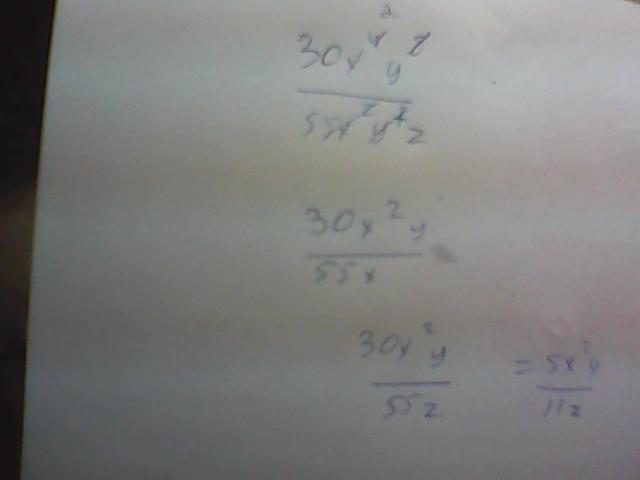 2
30x⁴y²
55x²y²z
30x²y
55x
30x²y
55z
= 5x²y
11z